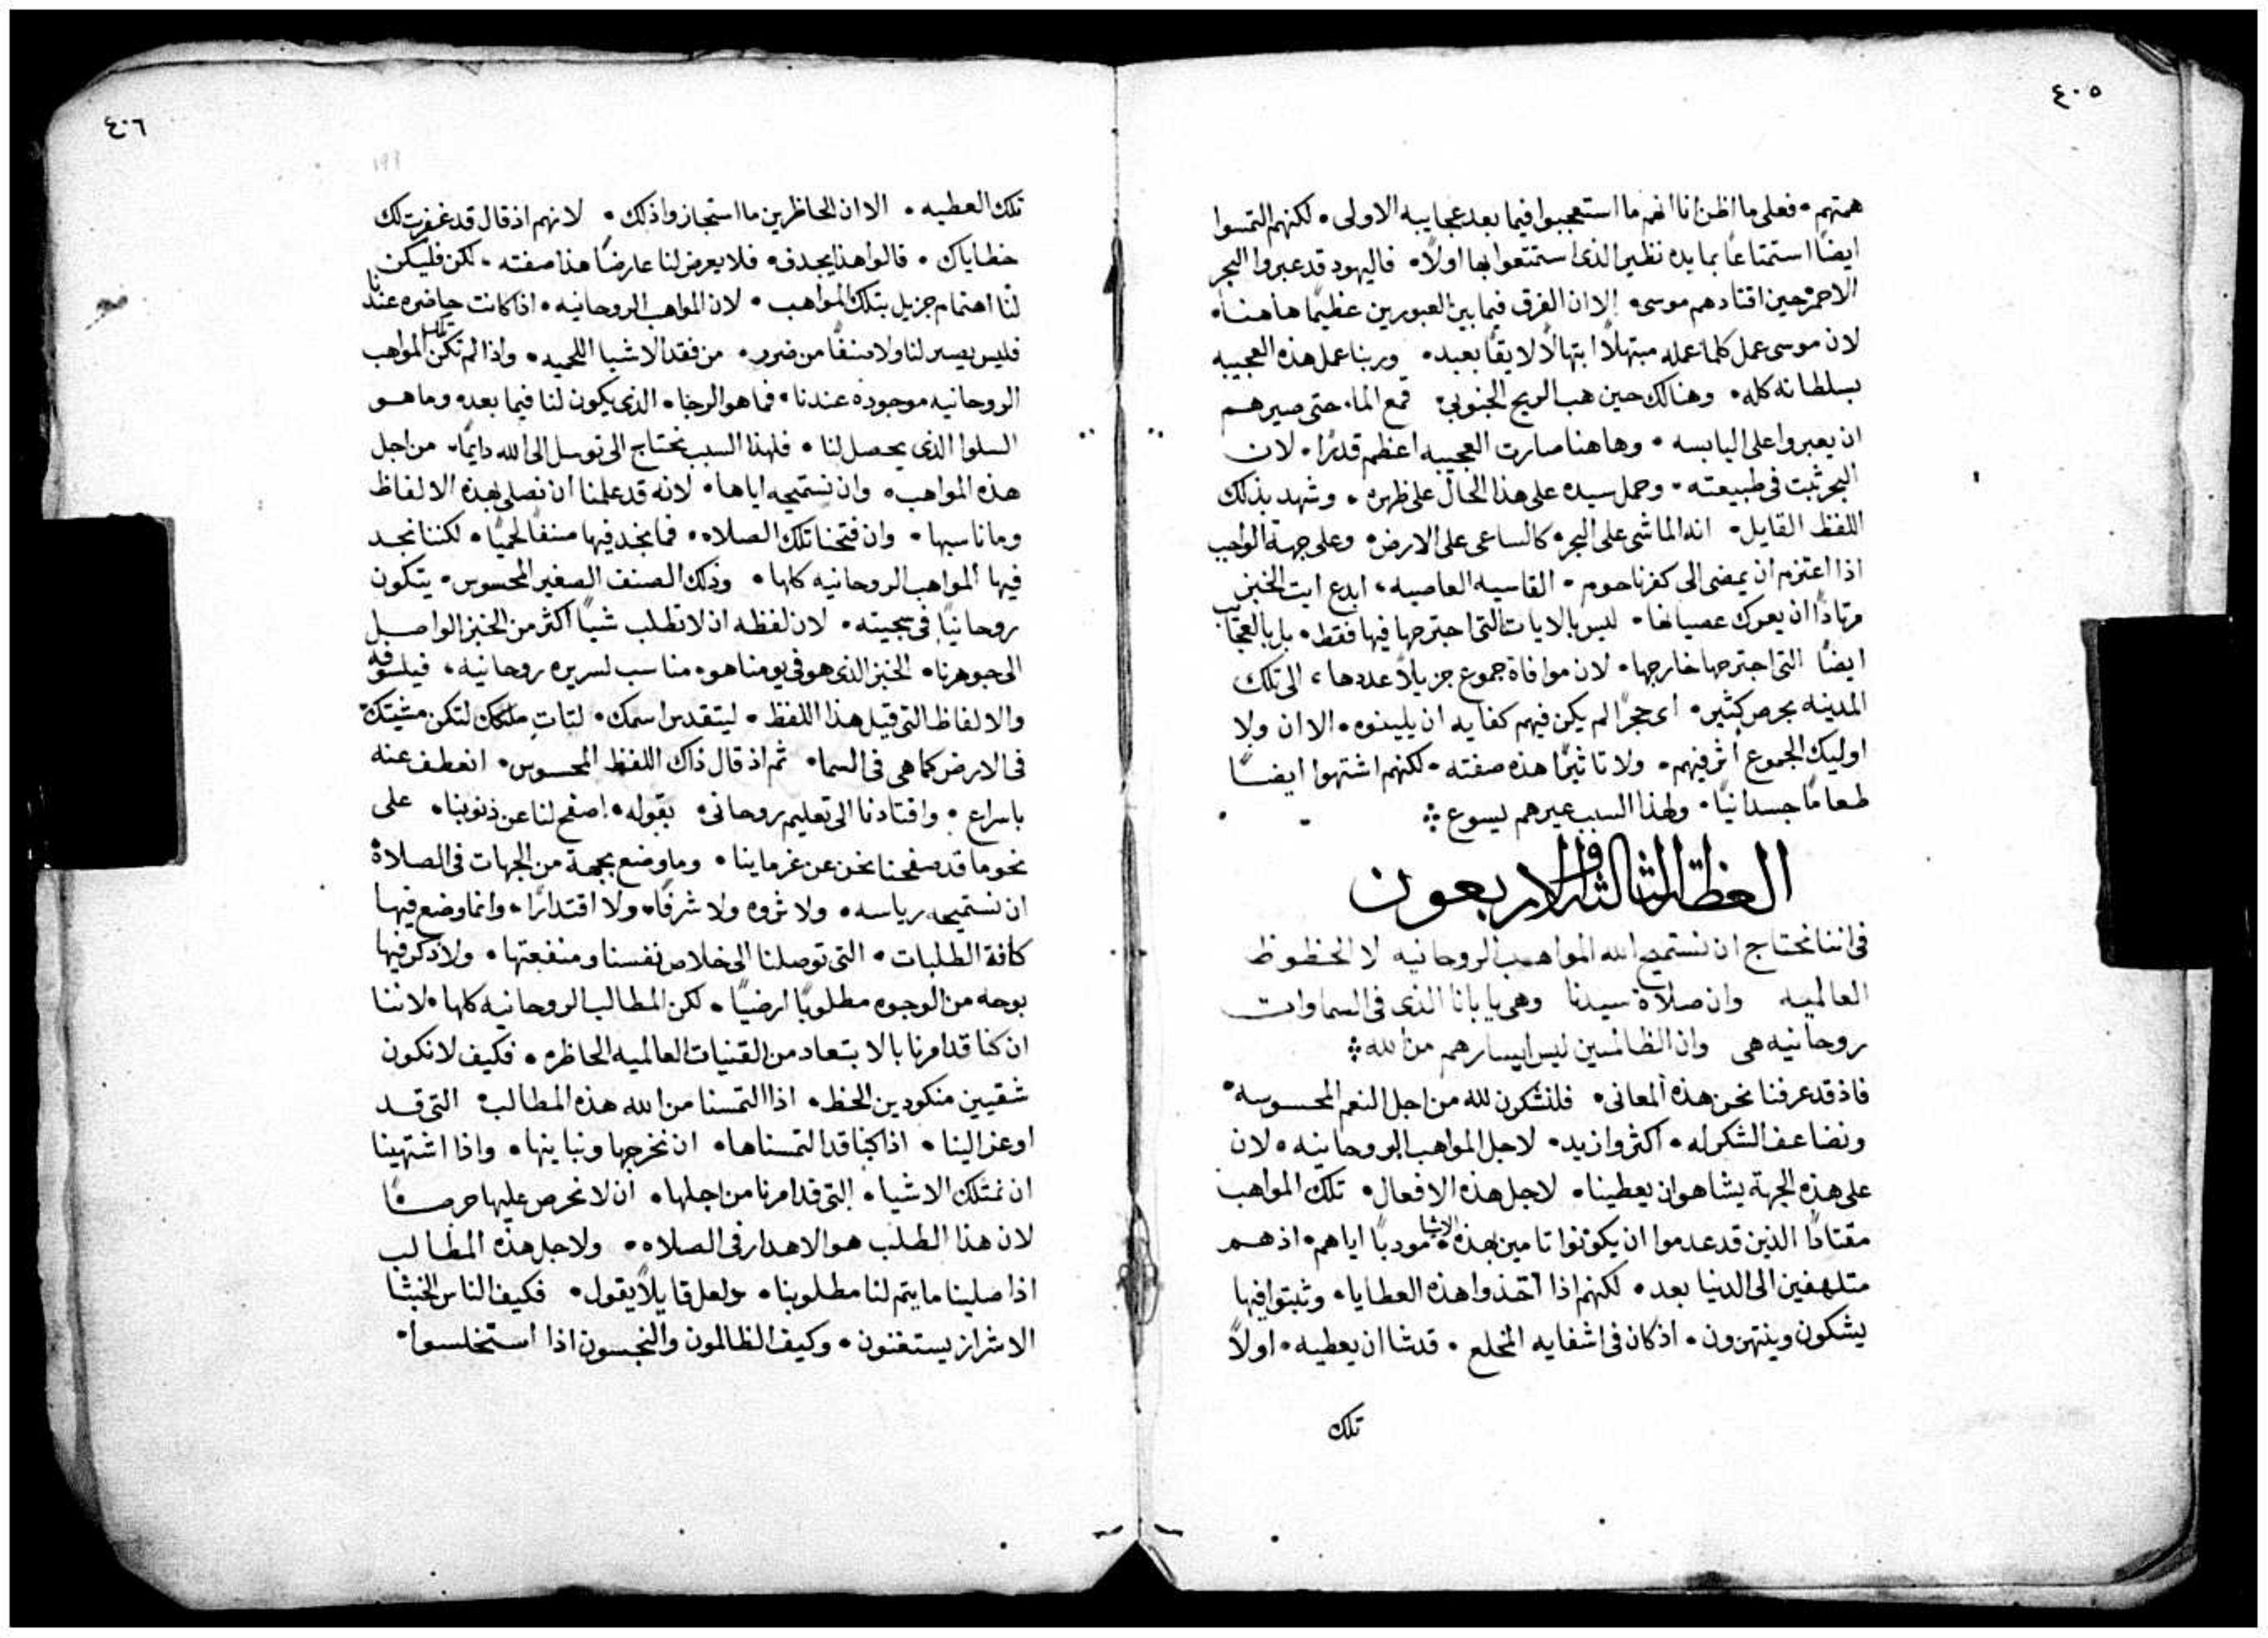 ٤٠٥
همتهم • فعلى ما اظن انا انهم ما استعجبوا فيما بعد عجايبه الاولى • لكنهم التمسوا
ايضًا استمتاعًا بمايده نظير الذى استمتعوا بها اولًا • فاليهود قد عبروا البحر
الاحمر حين اقتادهم موسى • الا ان الفرق فيما بين العبورين عظيمًا هاهنا •
لان موسى عمل كلما عمله مبتهلًا ابتهالًا لايقًا بعبد • وربنا عمل هذه العجيبه
بسلطانه كله • وهنالك حين هب الريح الجنوبى • قمع الما • حتى صيرهم
ان يعبروا على اليابسه • وهاهنا صارت العجيبه اعظم قدرًا • لان
البحر ثبت فى طبيعته • وحمل سيده على هذا الحال على ظهره • وشهد بذلك
اللفظ القايل • انه الماشى على البحر • كالساعى على الارض • وعلى جهة الواجب
اذا اعتزم ان يمضى الى كفرناحوم • القاسيه العاصيه • ابدع ايت الخبز
مرتادًا ان يعرك عصيانها • ليس بالايات التى اجترحها فيها فقط • بل بالعجايب
ايضًا التى اجترحها خارجها • لان موافاة جموع جزيلًا عددها • الى تلك
المدينه بحرص كثير • اى حجرًا لم يكن فيهم كفايه ان يلينوه • الا ان ولا
اوليك الجموع أثر فيهم • ولا تاثيرًا هذه صفته • لكنهم اشتهوا ايضًا
طعامًا جسدانيًا • ولهذا السبب عيرهم يسوع ⁘
العظة الثالثة والاربعون
فى اننا نحتاج ان نستميح الله المواهب الروحانيه لا الحظوظ
العالميه وان صلاة سيدنا وهى يابانا الذى فى السماوات
روحانيه هى وان الظالمين ليس ايسارهم من الله ⁘
فاذ قد عرفنا نحن هذه المعانى • فلنشكرن لله من اجل النعم المحسوسه •
ونضاعف الشكر له • اكثر وازيد • لاجل المواهب الروحانيه • لان
على هذه الجهة يشا هو ان يعطينا • لاجل هذه الافعال • تلك المواهب
مقتادًا الذين قد عدموا ان يكونوا تامين بهذه الاشيا • مودبًا اياهم • اذ هم
متلهفين الى الدنيا بعد • لكنهم اذا اتخذوا هذه العطايا • وثبتوا فيها
يشكون وينتهرون • اذ كان فى اشفايه المخلع • قد شا ان يعطيه • اولًا
تلك
٤٠٦
١٩٦
تلك العطيه • الا ان الحاظرين ما استجازوا ذلك • لانهم اذ قال قد غفرت لك
خطاياك • قالوا هذا يجدف • فلا يعرض لنا عارضًا هذا صفته • لكن فليكن
لنا اهتمام جزيل بتلك المواهب • لان المواهب الروحانيه • اذا كانت حاضره عندنا
فليس يصير لنا ولا صنفًا من ضرر • من فقد الاشيا اللحميه • واذا لم تكن تلك المواهب
الروحانيه موجوده عندنا • فما هو الرجا • الذى يكون لنا فيما بعد • وما هو
السلوا الذى يحصل لنا • فلهذا السبب نحتاج الى توسل الى الله دايمًا • من اجل
هذه المواهب • وان نستميحه اياها • لانه قد علمنا ان نصلى بهذه الالفاظ
وما ناسبها • وان فتحنا تلك الصلاه • فما نجد فيها صنفًا لحميًا • لكننا نجد
فيها المواهب الروحانيه كلها • وذلك الصنف الصغير المحسوس • يتكون
روحانيًا فى سجيته • لان لفظه ان لا تطلب شيًا اكثر من الخبز الواصل
الى جوهرنا • الخبز الذى هو فى يومنا هو • مناسب لسريره روحانيه • فيلسوفه
والالفاظ التى قبل هذا اللفظ • ليتقدس اسمك • لتات ملكك لتكن مشيتك
فى الارض كما هى فى السما • ثم اذ قال ذاك اللفظ المحسوس • انعطف عنه
باسراع • واقتادنا الى تعليم روحانى • بقوله • اصفح لنا عن ذنوبنا • على
نحو ما قد صفحنا نحن عن غرماينا • وما وضع بجهة من الجهات فى الصلاة
ان نستميحه رياسه • ولا ثروه ولا شرفًا • ولا اقتدارًا • وانما وضع فيها
كافة الطلبات • التى توصلنا الى خلاص نفسنا ومنفعتها • ولا ذكر فيها
بوجه من الوجوه مطلوبًا ارضيًا • لكن المطالب الروحانيه كلها • لاننا
ان كنا قد امرنا بالابتعاد من القنيات العالميه الحاظره • فكيف لا نكون
شقيين منكودين الحظ • اذا التمسنا من الله هذه المطالب التى قد
اوعز الينا • اذا كنا قد التمسناها • ان نخرجها ونباينها • واذا اشتهينا
ان نمتلك الاشيا • التى قد امرنا من اجلها • ان لا نحرص عليها حرصًا
لان هذا الطلب هو الاهدار فى الصلاه • ولاجل هذه المطالب
اذا صلينا ما يتم لنا مطلوبنا • ولعل قايلًا يقول • فكيف الناس الخبثا
الاشرار يستغنون • وكيف الظالمون والنجسون اذا استخلسوا •